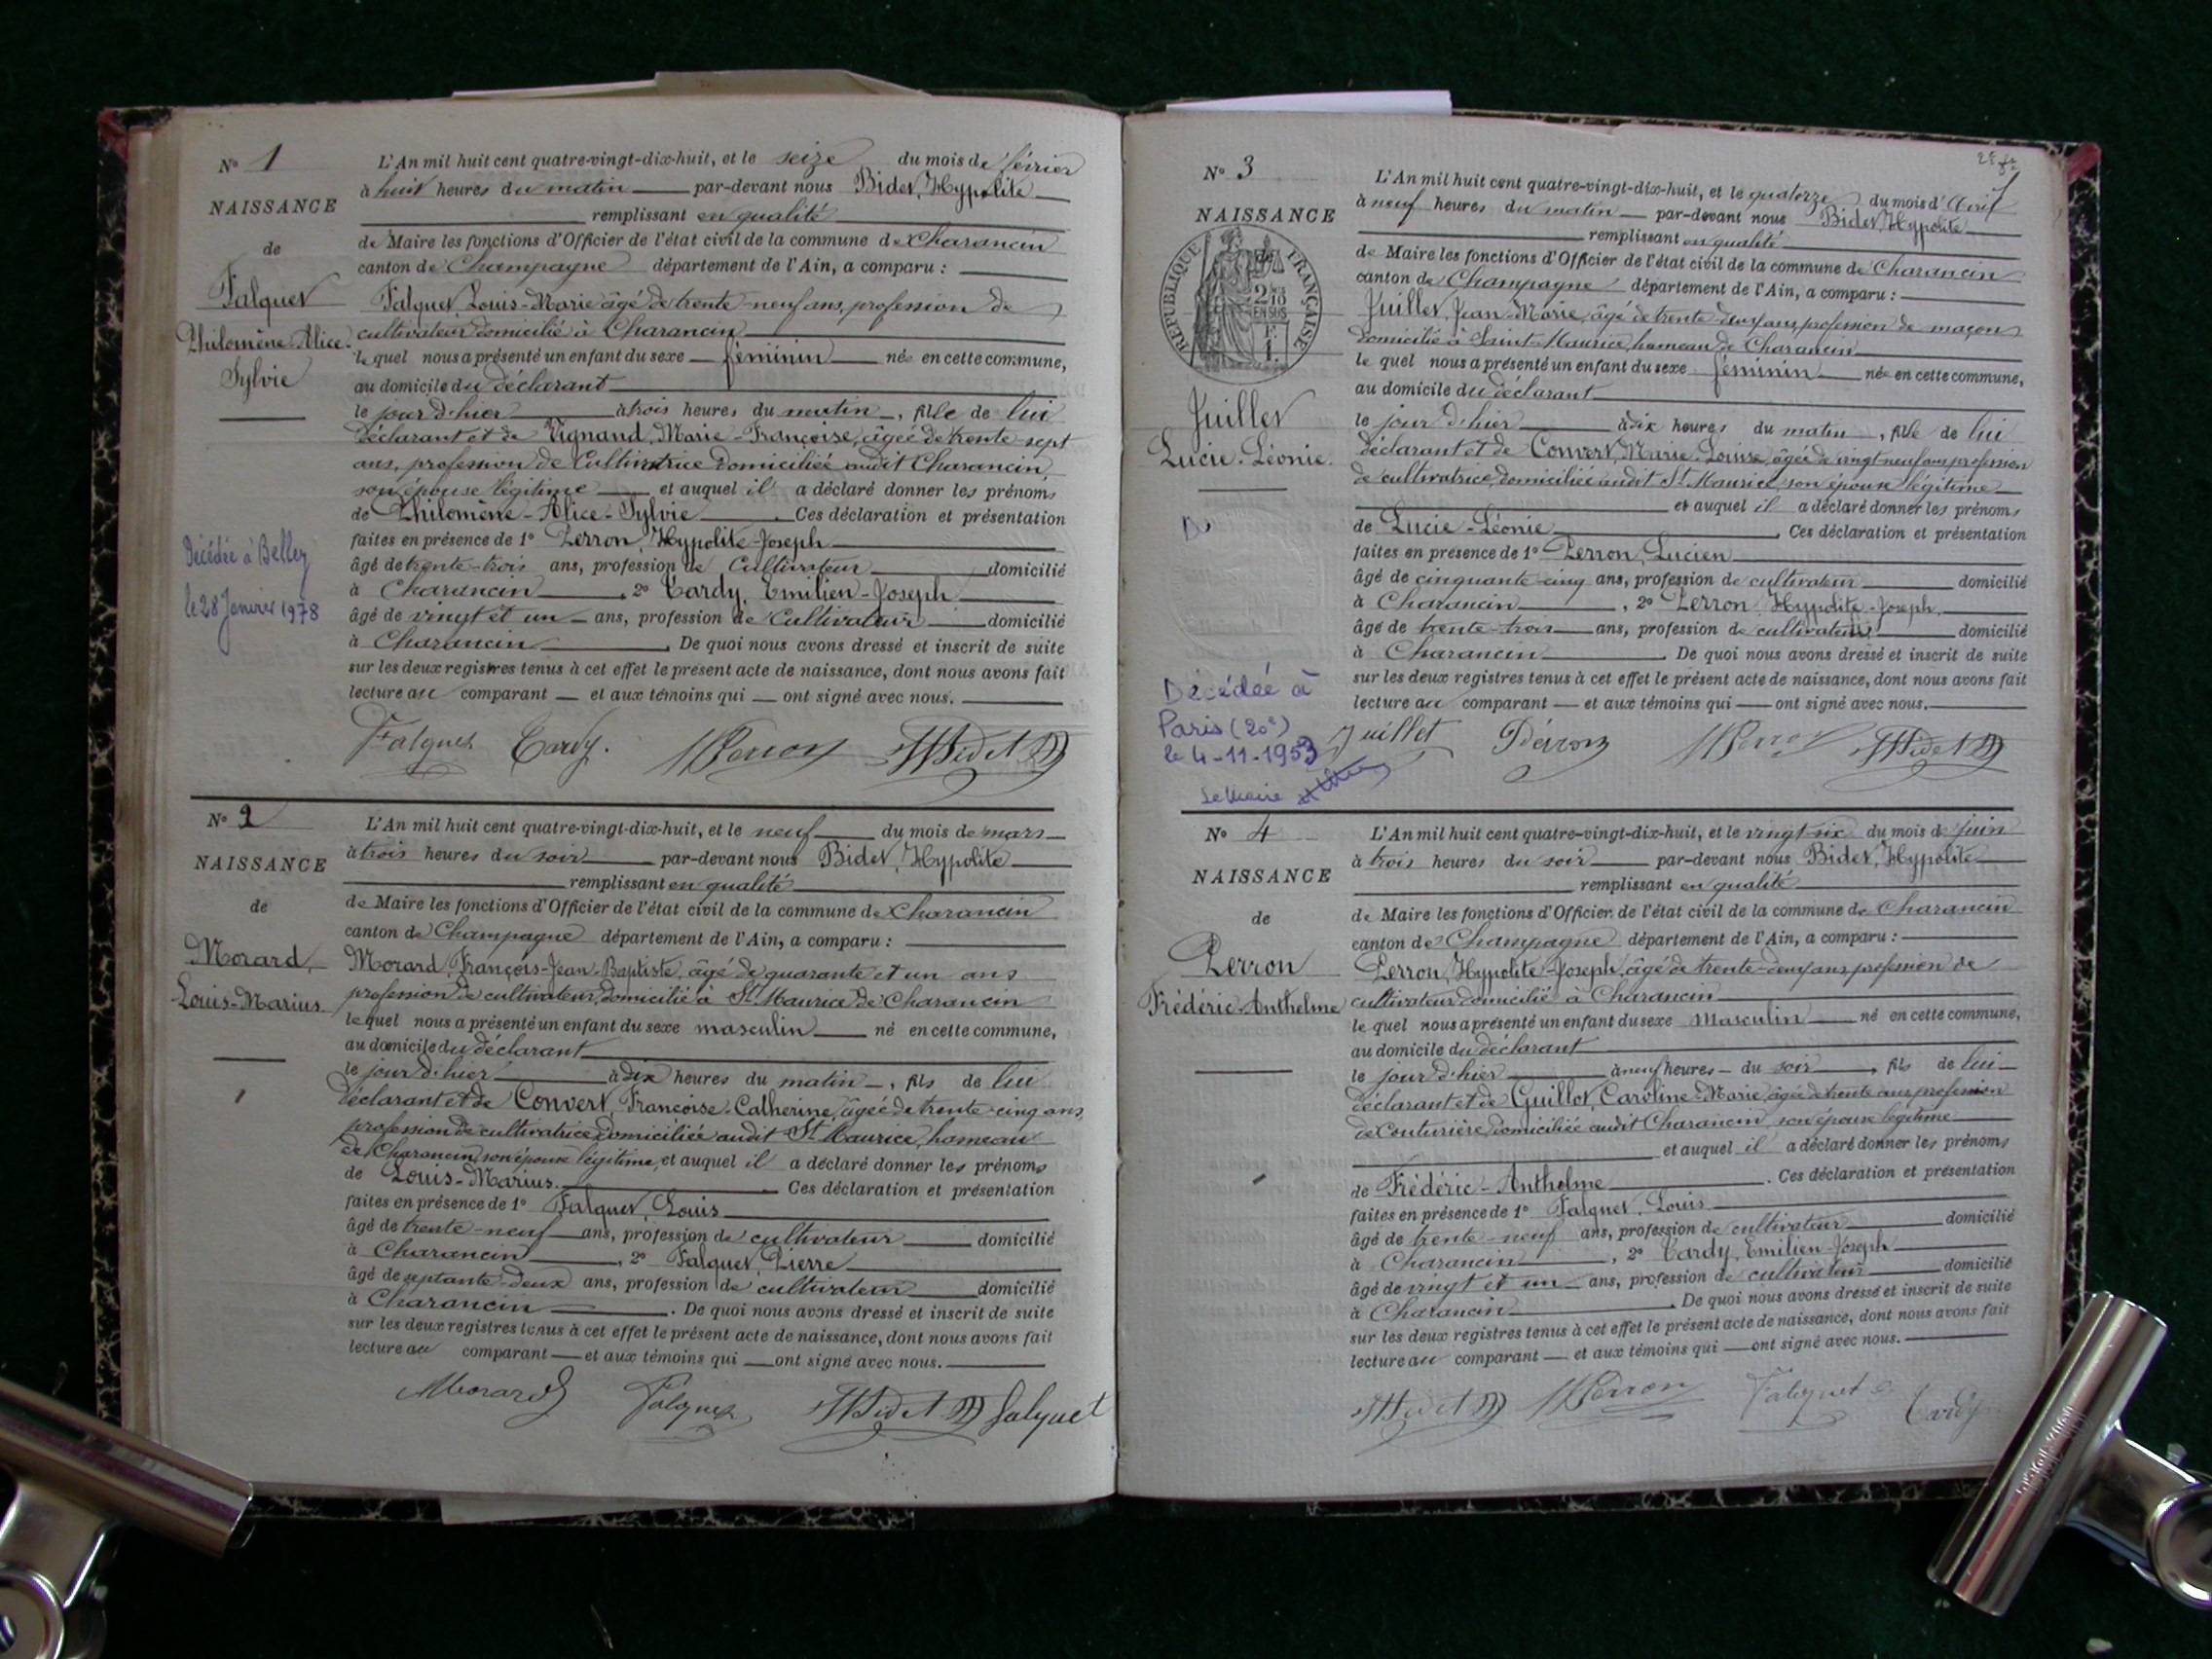 N° 1
NAISSANCE
de
Falquet
Philomène-Alice-
Sylvie
Décédée à Belley
le 28 Janvier 1978
L'An mil huit cent quatre-vingt-dix-huit, et le seize du mois de février
à huit heures du matin par-devant nous Bidet, Hypolite
remplissant en qualité
de Maire les fonctions d'Officier de l'état civil de la commune de Charancin
canton de Champagne département de l'Ain, a comparu :
Falquet, Louis-Marie âgé de trente-neuf ans, profession de
cultivateur domicilié à Charancin
lequel nous a présenté un enfant du sexe féminin née en cette commune,
au domicile du déclarant
le jour d'hier à trois heures du matin, fille de lui
déclarant et de Vignand, Marie-Françoise, âgée de trente sept
ans, profession de Cultivatrice domiciliée audit Charancin
son épouse légitime et auquel il a déclaré donner les prénoms
de Philomène-Alice-Sylvie. Ces déclaration et présentation
faites en présence de 1° Perron, Hypolite-Joseph
âgé de trente-trois ans, profession de Cultivateur domicilié
à Charancin, 2° Tardy, Emilien-Joseph
âgé de vingt et un ans, profession de Cultivateur domicilié
à Charancin. De quoi nous avons dressé et inscrit de suite
sur les deux registres tenus à cet effet le présent acte de naissance, dont nous avons fait
lecture au comparant et aux témoins qui ont signé avec nous.
Falquet Tardy. HPerron HBidet
N° 2
NAISSANCE
de
Morard,
Louis-Marius.
L'An mil huit cent quatre-vingt-dix-huit, et le neuf du mois de mars
à trois heures du soir par-devant nous Bidet, Hypolite
remplissant en qualité
de Maire les fonctions d'Officier de l'état civil de la commune de Charancin
canton de Champagne département de l'Ain, a comparu :
Morard, François-Jean-Baptiste, âgé de quarante et un ans
profession de cultivateur, domicilié à St Maurice de Charancin
lequel nous a présenté un enfant du sexe masculin né en cette commune,
au domicile du déclarant
le jour d'hier à dix heures du matin, fils de lui
déclarant et de Convert, Françoise-Catherine, âgée de trente-cinq ans,
profession de cultivatrice domiciliée audit St Maurice, hameau
de Charancin, son épouse légitime, et auquel il a déclaré donner les prénoms
de Louis-Marius. Ces déclaration et présentation
faites en présence de 1° Falquet, Louis
âgé de trente-neuf ans, profession de cultivateur domicilié
à Charancin, 2° Falquet, Pierre
âgé de septante-deux ans, profession de cultivateur domicilié
à Charancin. De quoi nous avons dressé et inscrit de suite
sur les deux registres tenus à cet effet le présent acte de naissance, dont nous avons fait
lecture au comparant et aux témoins qui ont signé avec nous.
Morard Falquet HBidet Falquet
N° 3
NAISSANCE
de
RÉPUBLIQUE FRANÇAISE
EN SUS
Juillet
Lucie-Léonie.
Décédée à
Paris (20e)
le 4-11-1953
Le Maire
L'An mil huit cent quatre-vingt-dix-huit, et le quatorze du mois d'Avril
à neuf heures du matin par-devant nous Bidet, Hypolite
remplissant en qualité
de Maire les fonctions d'Officier de l'état civil de la commune de Charancin
canton de Champagne département de l'Ain, a comparu :
Juillet, Jean-Marie, âgé de trente-deux ans, profession de maçon
domicilié à Saint-Maurice, hameau de Charancin
lequel nous a présenté un enfant du sexe féminin née en cette commune,
au domicile du déclarant
le jour d'hier à dix heures du matin, fille de lui
déclarant et de Convert, Marie-Louise, âgée de vingt-neuf ans profession
de cultivatrice, domiciliée audit St Maurice, son épouse légitime
et auquel il a déclaré donner les prénoms
de Lucie-Léonie. Ces déclaration et présentation
faites en présence de 1° Perron, Lucien
âgé de cinquante-cinq ans, profession de cultivateur domicilié
à Charancin, 2° Perron, Hypolite-Joseph,
âgé de trente-trois ans, profession de cultivateur domicilié
à Charancin. De quoi nous avons dressé et inscrit de suite
sur les deux registres tenus à cet effet le présent acte de naissance, dont nous avons fait
lecture au comparant et aux témoins qui ont signé avec nous.
Juillet Perron HPerron HBidet
N° 4
NAISSANCE
de
Perron
Frédéric-Anthelme
L'An mil huit cent quatre-vingt-dix-huit, et le vingt six du mois de juin
à trois heures du soir par-devant nous Bidet, Hypolite
remplissant en qualité
de Maire les fonctions d'Officier de l'état civil de la commune de Charancin
canton de Champagne département de l'Ain, a comparu :
Perron, Hypolite-Joseph, âgé de trente-deux ans profession de
cultivateur domicilié à Charancin
lequel nous a présenté un enfant du sexe Masculin né en cette commune,
au domicile du déclarant
le jour d'hier à neuf heures du soir, fils de lui
déclarant et de Guillot, Caroline-Marie, âgée de trente ans profession
de Couturière, domiciliée audit Charancin, son épouse légitime
et auquel il a déclaré donner les prénoms
de Frédéric-Anthelme. Ces déclaration et présentation
faites en présence de 1° Falquet, Louis
âgé de trente-neuf ans, profession de cultivateur domicilié
à Charancin, 2° Tardy, Emilien-Joseph
âgé de vingt et un ans, profession de cultivateur domicilié
à Charancin. De quoi nous avons dressé et inscrit de suite
sur les deux registres tenus à cet effet le présent acte de naissance, dont nous avons fait
lecture au comparant et aux témoins qui ont signé avec nous.
HBidet HPerron Falquet Tardy